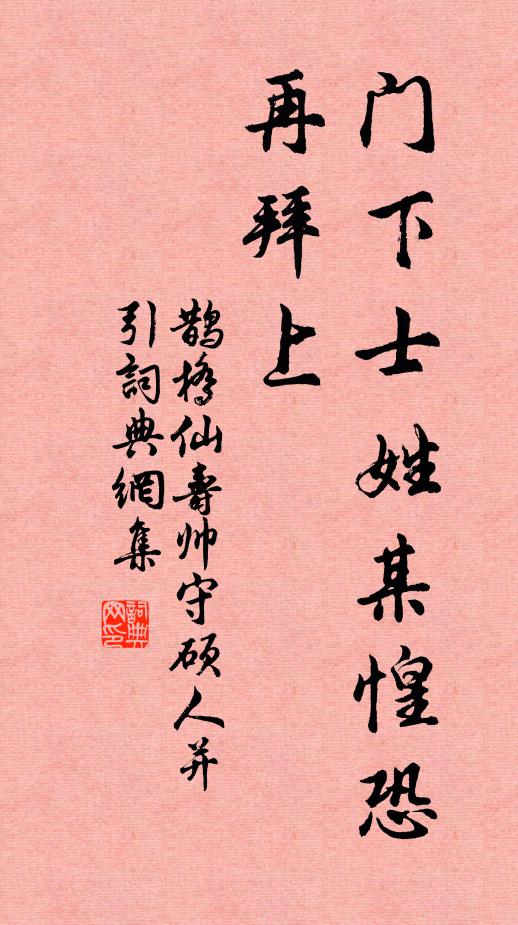 门下士姓某惶恐
再拜上
鹊橋仙壽帅守硕人并
引詞典網集
詞典
网印